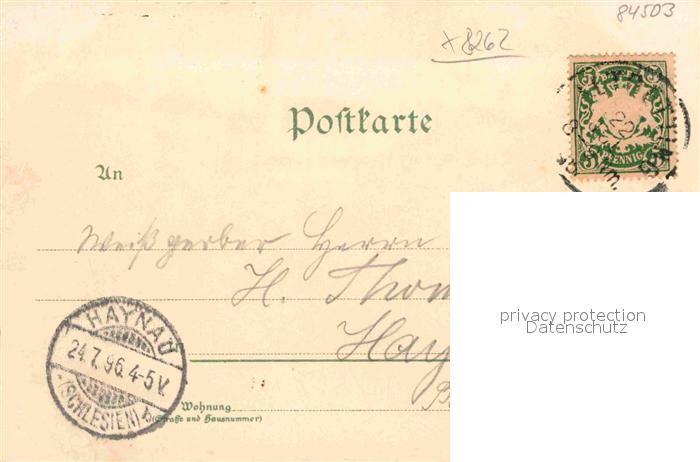 84503
x8262
Postkarte
3 3
22
PFENNIG
3 3
An
Weißgerber Herrn
H. Thom
Hay
HAYNAU
24.7.96.4-5V.
(SCHLESIEN)
Wohnung
(Straße und Hausnummer)
privacy protection
Datenschutz